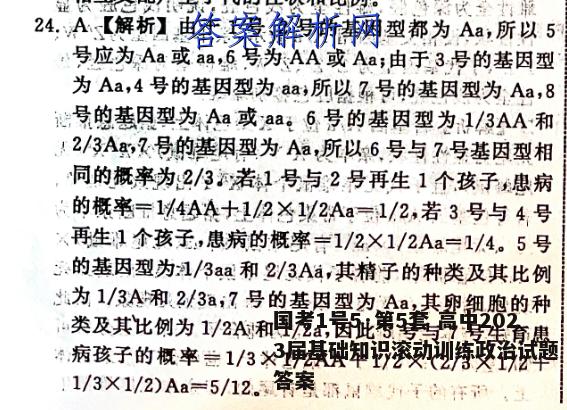 24. A 【解析】由 号 号 基 型都为 Aa,所以 5
答案解析网
号应为 Aa 或 aa,6 号为 AA 或 Aa;由于 3 号的基因型
为 Aa,4 号的基因型为 aa,所以 7 号的基因型为 Aa,8
号的基因型为 Aa 或 aa。6 号的基因型为 1/3AA 和
2/3Aa,7 号的基因型为 Aa,所以 6 号与 7 号基因型相
同的概率为 2/3。若 1 号与 2 号再生 1 个孩子,患病
的概率=1/4AA+1/2×1/2Aa=1/2,若 3 号与 4 号
再生 1 个孩子,患病的概率=1/2×1/2Aa=1/4。5 号
的基因型为 1/3aa 和 2/3Aa,其精子的种类及其比例
为 1/3A 和 2/3a,7 号的基因型为 Aa,其卵细胞的种
类及其比例为 1/2A 和 1/2a,因此 5 号与 7 号生育患
病孩子的概率=1/3×1/2AA+1/2×(2/3×1/2+
1/3×1/2)Aa=5/12。
国考1号5·第5套·高中202
3届基础知识滚动训练政治试题
答案